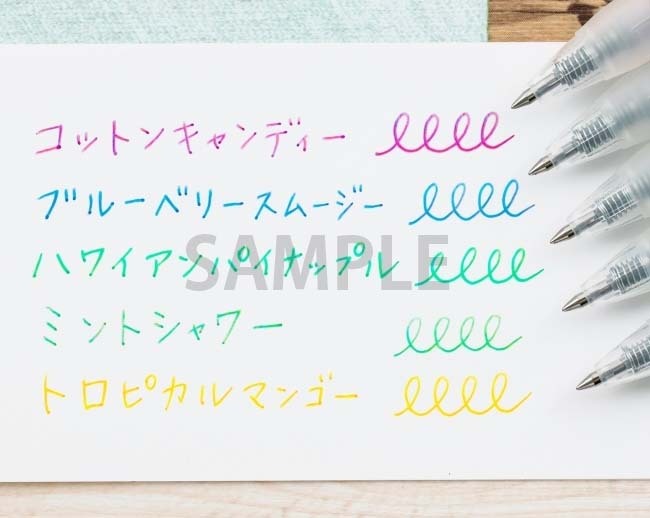 コットンキャンディー
ブルーベリースムージー
ハワイアンパイナップル
SAMPLE
ミントシャワー
トロピカルマンゴー